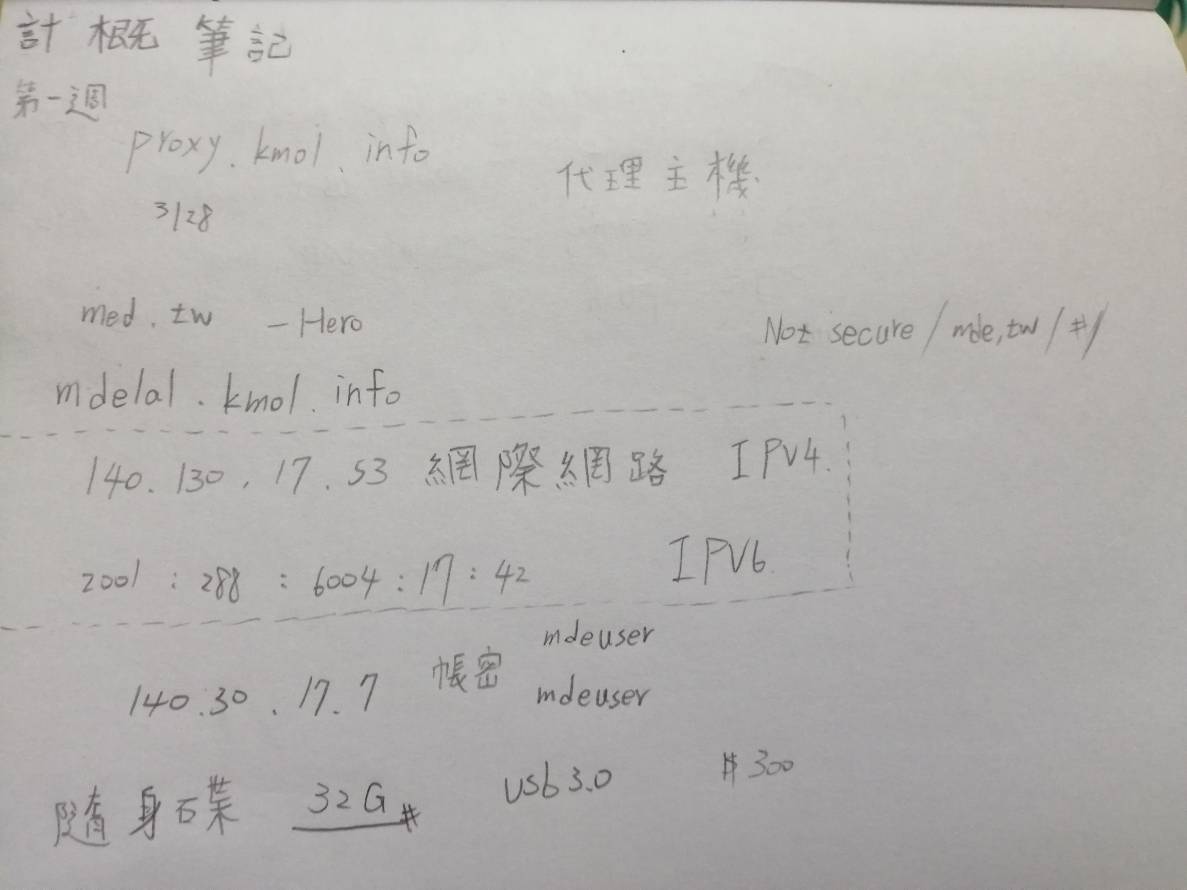 計概筆記
第一週
proxy.kmol.info 代理主機.
3128
med.tw - Hero Not secure / mde,tw / #/
mdelal.kmol.info
140.130.17.53 網際網路 IPV4.
2001:288:6004:17:42 IPV6
mdeuser
140.30.17.7 帳密 mdeuser
隨身碟 32G # USb 3.0 # 300